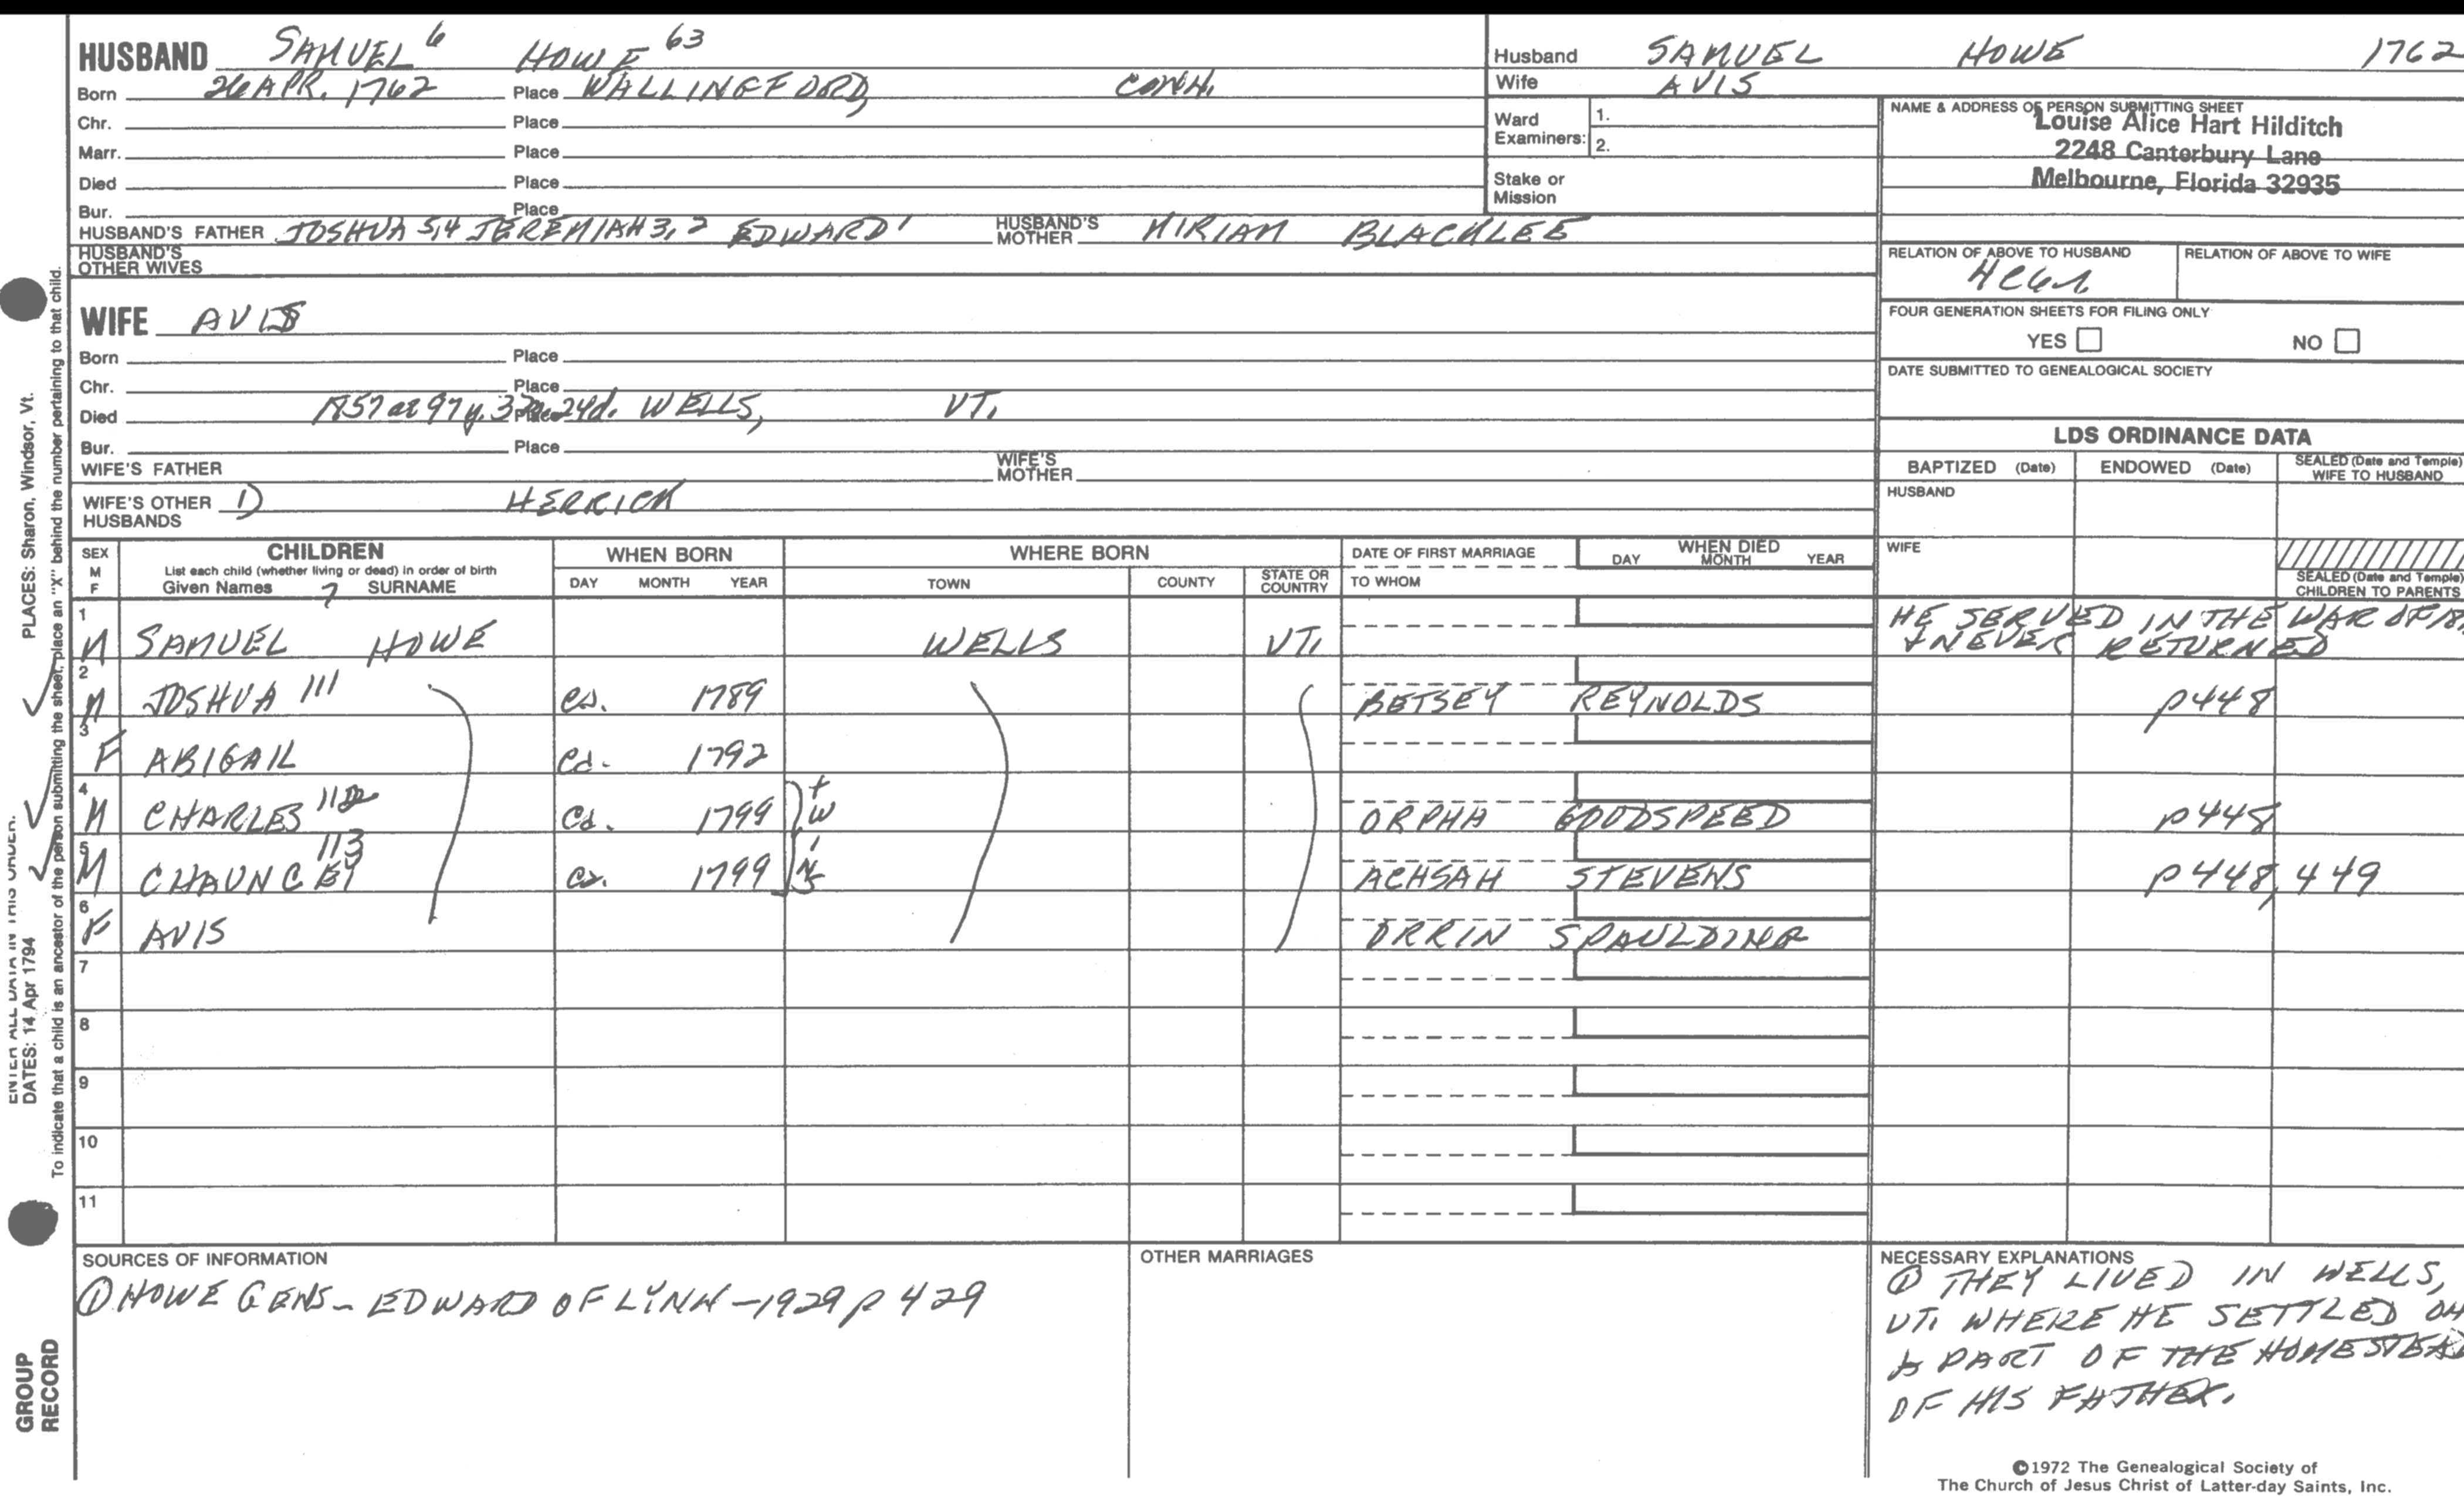 HUSBAND SAMUEL 6 HOWE 63
Born 26 APR. 1762 Place WALLINGFORD, CONN.
Chr. Place
Marr. Place
Died Place
Bur. Place
HUSBAND'S FATHER JOSHUA 5,4 JEREMIAH 3,2 EDWARD 1 HUSBAND'S MOTHER MIRIAM BLACKLEE
HUSBAND'S OTHER WIVES
Husband SAMUEL HOWE 1762
Wife AVIS
Ward Examiners: 1.
2.
Stake or Mission
NAME & ADDRESS OF PERSON SUBMITTING SHEET
Louise Alice Hart Hilditch
2248 Canterbury Lane
Melbourne, Florida 32935
RELATION OF ABOVE TO HUSBAND RELATION OF ABOVE TO WIFE
FOUR GENERATION SHEETS FOR FILING ONLY
YES NO
DATE SUBMITTED TO GENEALOGICAL SOCIETY
WIFE AVIS
Born Place
Chr. Place
Died 1857 ae 97 y. 24d. Place WELLS, VT.
Bur. Place
WIFE'S FATHER WIFE'S MOTHER
WIFE'S OTHER HUSBANDS 1) HERRICK
LDS ORDINANCE DATA
BAPTIZED (Date) ENDOWED (Date) SEALED (Date and Temple) WIFE TO HUSBAND
HUSBAND
WIFE
SEALED (Date and Temple) CHILDREN TO PARENTS
SEX M F CHILDREN WHEN BORN WHERE BORN DATE OF FIRST MARRIAGE WHEN DIED
List each child (whether living or dead) in order of birth DAY MONTH YEAR
Given Names 7 SURNAME DAY MONTH YEAR TOWN COUNTY STATE OR COUNTRY TO WHOM
1 M SAMUEL HOWE WELLS VT. HE SERVED IN THE WAR OF
+ NEVER RETURNED
2 M JOSHUA 111 ca. 1789 BETSEY REYNOLDS p448
3 F ABIGAIL ca. 1792
4 M CHARLES 112 ca. 1799 twins ORPHA GOODSPEED p448
5 M CHAUNCEY 113 ca. 1799 ACHSAH STEVENS p448, 449
6 F AVIS ORRIN SPAULDING
7
8
9
10
11
SOURCES OF INFORMATION
① HOWE GENS - EDWARD OF LYNN - 1929 p 429
OTHER MARRIAGES
NECESSARY EXPLANATIONS
① THEY LIVED IN WELLS,
VT. WHERE HE SETTLED ON
A PART OF THE HOMESTEAD
OF HIS FATHER.
©1972 The Genealogical Society of
The Church of Jesus Christ of Latter-day Saints, Inc.
PLACES: Sharon, Windsor, Vt.
ENTER ALL DATA IN THIS ORDER:
DATES: 14 Apr 1794
To indicate that a child is an ancestor of the person submitting the sheet, place an "X" behind the number pertaining to that child.
GROUP
RECORD